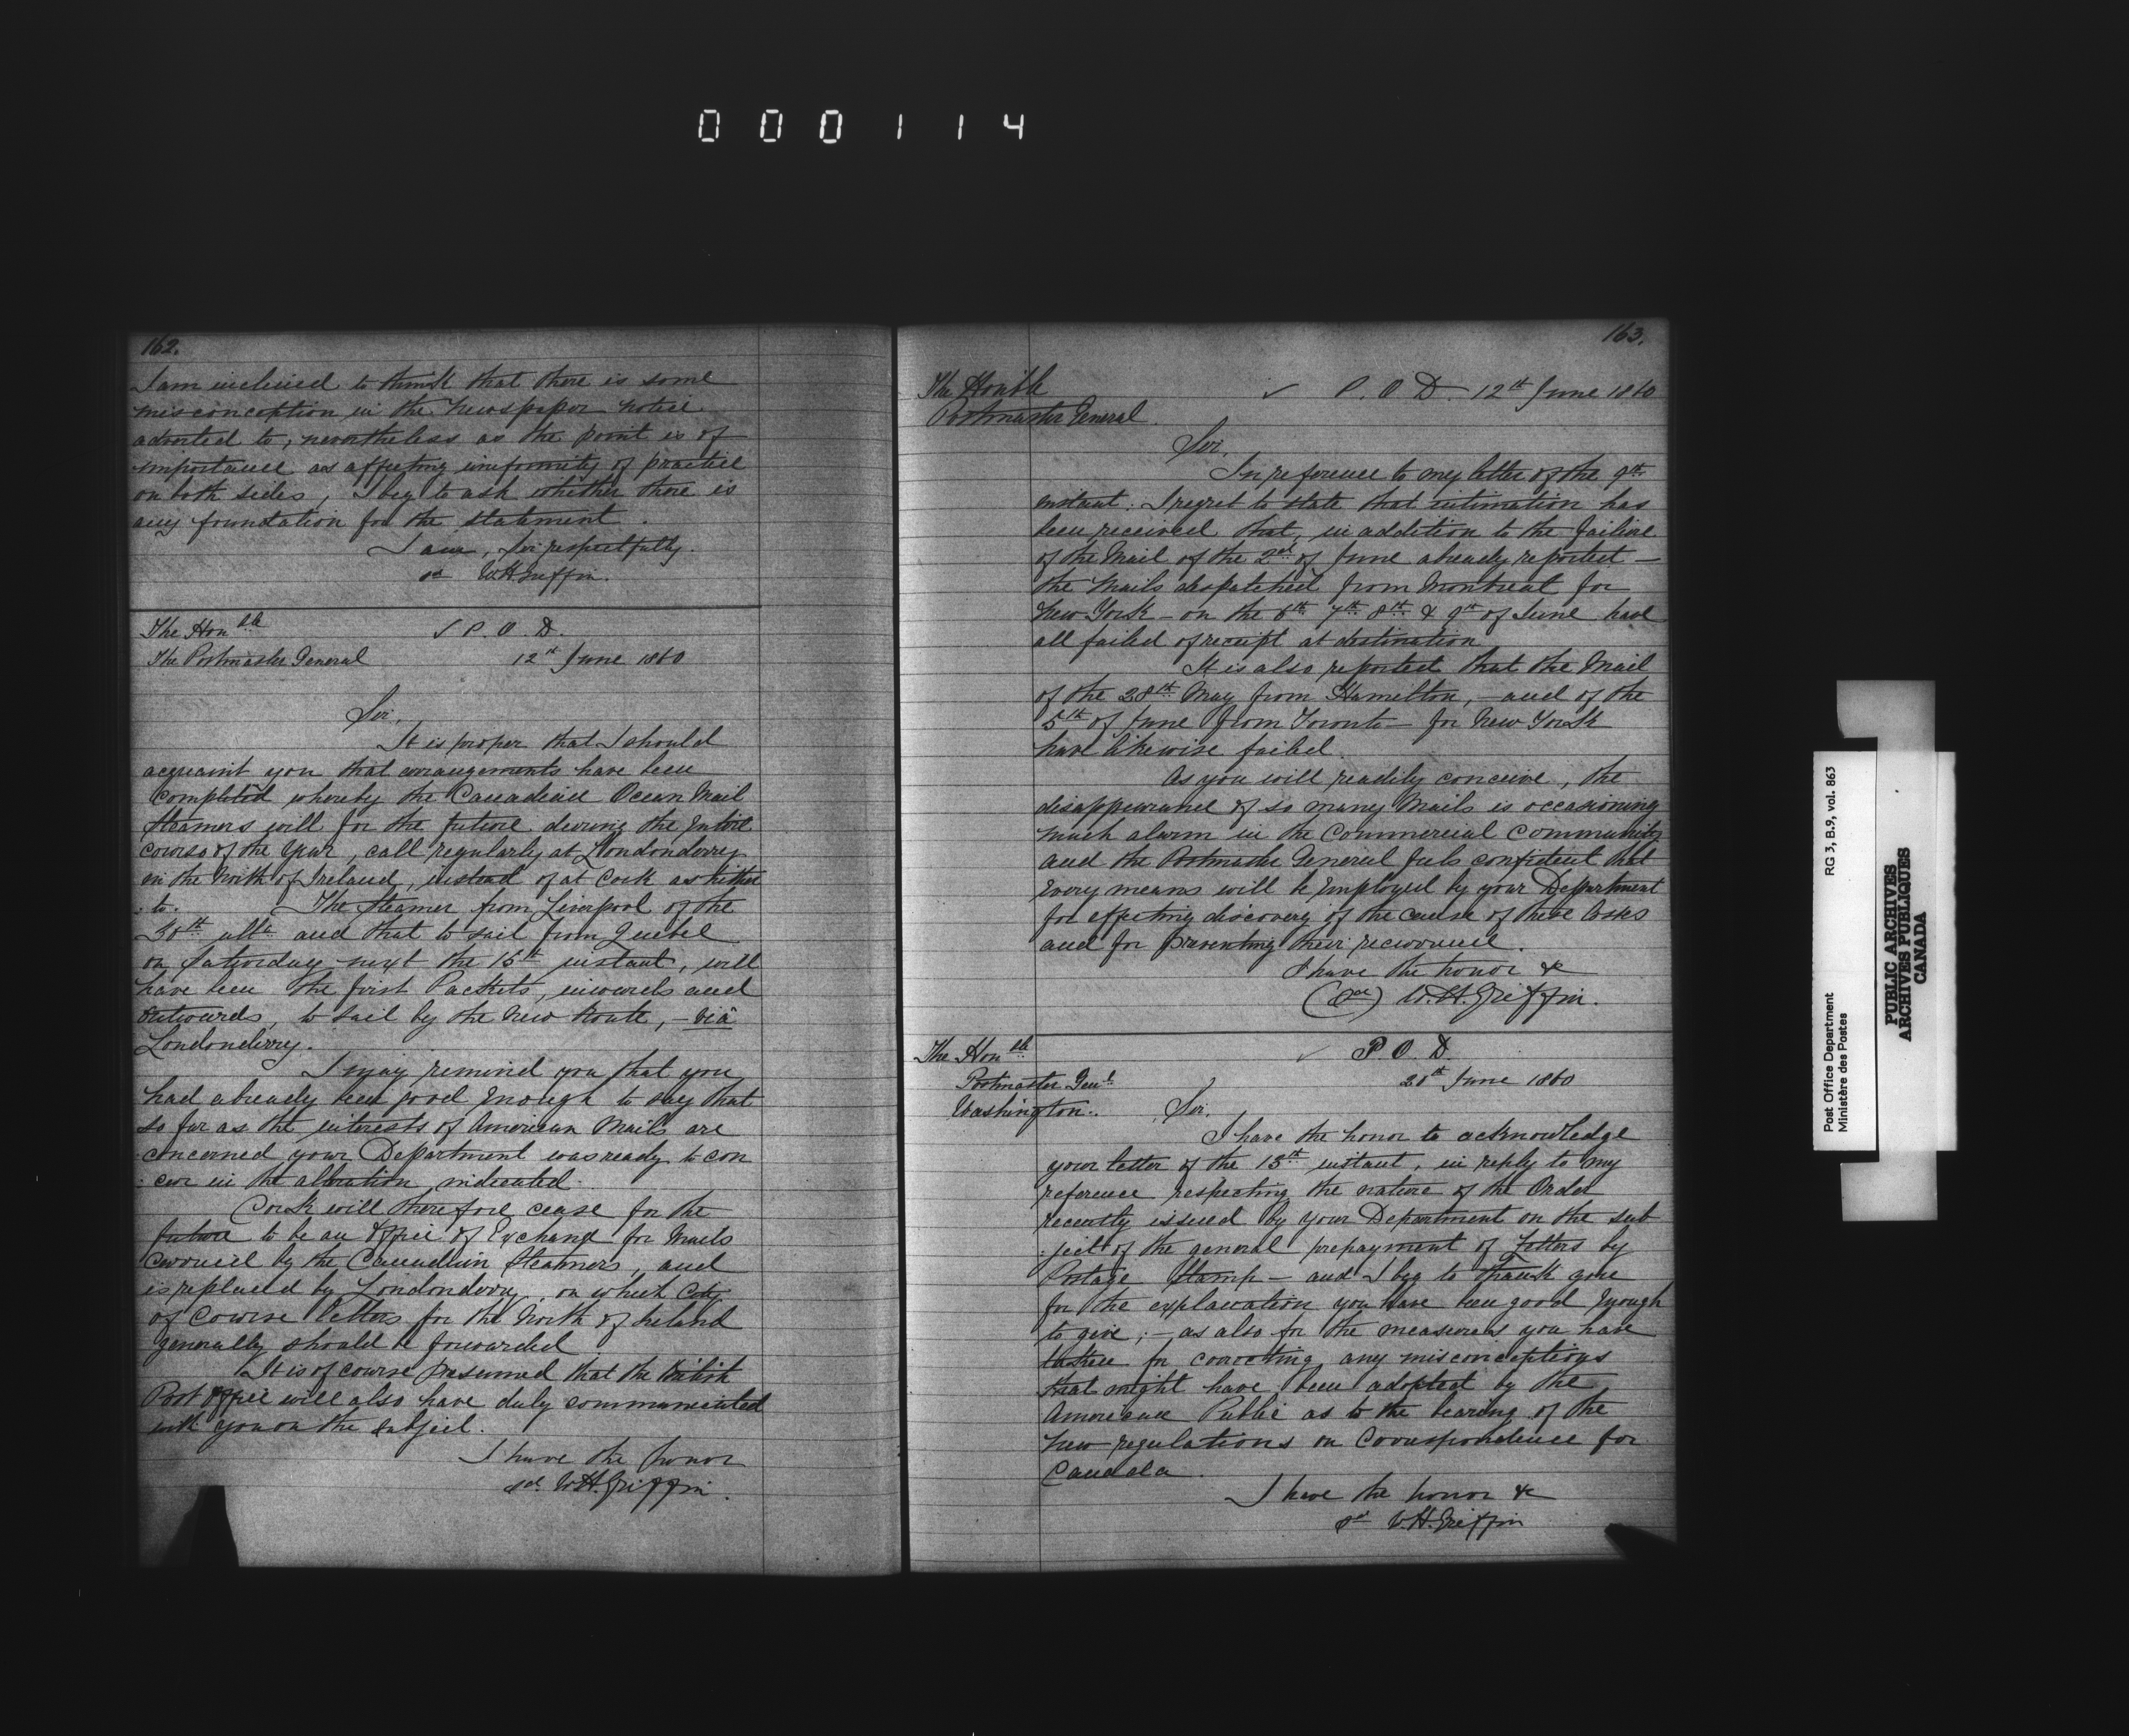 000114
162.
I am inclined to think that there is some
misconception in the Newspaper notice
adverted to; nevertheless as the point is of
importance as affecting uniformity of practice
on both sides, I beg to ask whether there is
any foundation for the statement.
I am, Sir respectfully.
sd W.H. Griffin.
The Honble ✓ P. O. D.
The Postmaster General 12th June 1860
Sir,
It is proper that I should
acquaint you that arrangements have been
completed whereby the Canadian Ocean Mail
Steamers will for the future during the Entire
course of the Year, call regularly at Londonderry
in the North of Ireland, instead of at Cork as hither
:to. The Steamer from Liverpool of the
30th ulto and that to sail from Quebec
on Saturday next the 16th instant, will
have been the first Packets, inwards and
Outwards, to sail by the New Route, - viâ
Londonderry.
I may remind you that you
had already been good Enough to say that
so far as the interests of American Mails are
concerned your Department was ready to con
:cur in the alteration indicated.
Cork will therefore cease for the
future to be an Office of Exchange for Mails
carried by the Canadian Steamers, and
is replaced by Londonderry, on which City
of course letters for the North of Ireland
generally should be forwarded
It is of course presumed that the British
Post Office will also have duly communicated
with you on the subject.
I have the honor
sd. W.H. Griffin.
163.
The Honble ✓ P. O. D. 12th June 1860
Postmaster General.
Sir,
In reference to my letter of the 9th
instant: I regret to state that intimation has
been received that, in addition to the failure
of the Mail of the 2nd of June already reported -
the Mails despatched from Montreal for
New York - on the 6th 7th 8th & 9th of June have
all failed of receipt at destination
It is also reported that the Mail
of the 28th May from Hamilton, - and of the
5th of June from Toronto - for New York
have likewise failed.
As you will readily conceive, the
disappearance of so many Mails is occasioning
much alarm in the Commercial Community
and the Postmaster General feels confident that
Every means will be Employed by your Department
for effecting discovery of the cause of these losses
and for preventing their recurrence.
I have the honor &
(sd) W.H. Griffin.
The Honble ✓ P. O. D.
Postmaster Genl. 20th June 1860
Washington. Sir.
I have the honor to acknowledge
your letter of the 15th instant, in reply to my
reference respecting the nature of the Order
recently issued by your Department on the sub
:ject of the general prepayment of Letters by
Postage Stamp - and I beg to thank you
for the explanation you have been good Enough
to give; - as also for the measures you have
taken for correcting any misconceptions
that might have been adopted by the
American Public as to the bearing of the
New regulations on Correspondence for
Canada.
I have the honor &
sd W.H. Griffin
Post Office Department RG 3, B.9, vol. 863
Ministère des Postes
PUBLIC ARCHIVES
ARCHIVES PUBLIQUES
CANADA